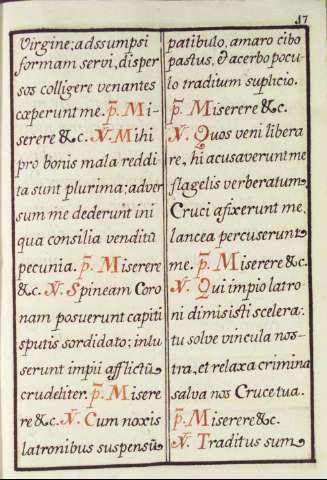 17
Virgine; adssumpsi
formam servi, disper
sos colligere venantes
cæperunt me. p. Mi-
serere &c. V. Mihi
pro bonis mala reddi
ta sunt plurima; adver
sum me dederunt ini
qua consilia venditũ
pecunia. p. Miserere
&c. V. Spineam Coro
nam posuerunt capiti
sputis sordidato; inlu
serunt impii afflictũ
crudeliter. p. Misere
re &c. V. Cum noxis
latronibus suspensũ
patibulo, amaro cibo
pastus, & acerbo pocu
lo traditum suplicio.
p. Miserere &c.
V. Quos veni libera
re, hi acusaverunt me
flagelis verberatum,
Cruci afixerunt me,
lancea percuserunt
me. p. Miserere &c.
V. Qui impio latro-
ni dimisisti scelera:
tu solve vincula nos-
tra, et relaxa crimina
salva nos Cruce tua.
p. Miserere &c.
V. Traditus sum